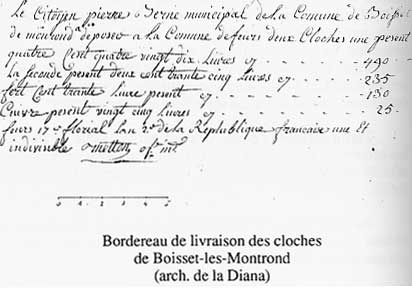 Le Citoyen pierre Berne municipal de La Comune de Boiss
de monrond deposer a La Comune defeurs deux Cloches une pesent
quatre Cent quatre vingt dix Livres cy - - - - - - 490
La seconde pesent deux cent trante cinq Livres cy - - - - 235
fert Cent trante Livre pesent cy - - - - - - 130
Cuivre pesent vingt cinq Livres cy - - - - - - 25
feurs 17e florial Lan 2e de La Republique francaise une Et
indivisible
0 1 2 3 4 5
Bordereau de livraison des cloches
de Boisset-les-Montrond
(arch. de la Diana)